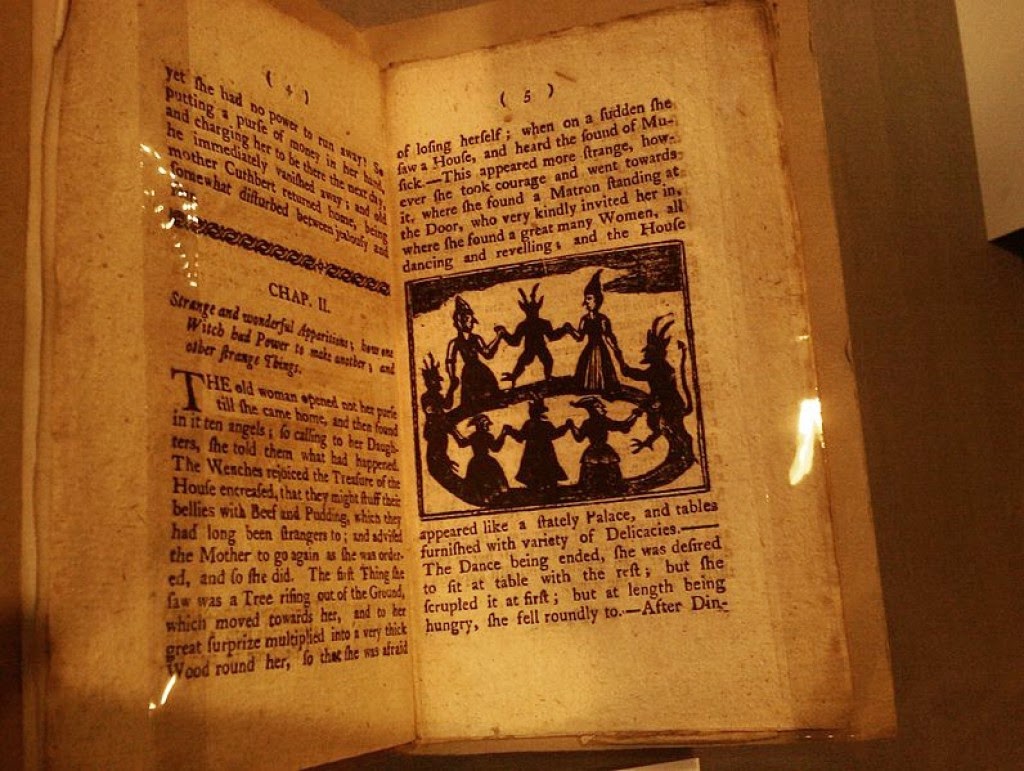 ( 4 )
yet ſhe had no power to run away! So
putting a purſe of money in her hand,
and charging her to be there the next day,
he immediately vaniſhed away; and old
mother Cuthbert returned home, being
ſomewhat diſturbed between jealouſy and
CHAP. II.
Strange and wonderful Apparitions; how one
Witch had Power to make another; and
other ſtrange Things.
THE old woman opened not her purſe
till ſhe came home, and then found
in it ten angels; ſo calling to her Daugh-
ters, ſhe told them what had happened.
The Wenches rejoiced the Treaſure of the
Houſe encreaſed, that they might ſtuff their
bellies with Beef and Pudding, which they
had long been ſtrangers to; and adviſed
the Mother to go again as ſhe was order-
ed, and ſo ſhe did. The firſt Thing ſhe
ſaw was a Tree riſing out of the Ground,
which moved towards her, and to her
great ſurprize multiplied into a very thick
Wood round her, ſo that ſhe was afraid
( 5 )
of loſing herſelf; when on a ſudden ſhe
ſaw a Houſe, and heard the ſound of Mu-
ſick.—This appeared more ſtrange, how-
ever ſhe took courage and went towards
it, where ſhe found a Matron ſtanding at
the Door, who very kindly invited her in,
where ſhe found a great many Women, all
dancing and revelling; and the Houſe
appeared like a ſtately Palace, and tables
furniſhed with variety of Delicacies.——
The Dance being ended, ſhe was deſired
to ſit at table with the reſt; but ſhe
ſcrupled it at firſt; but at length being
hungry, ſhe fell roundly to.—After Din-